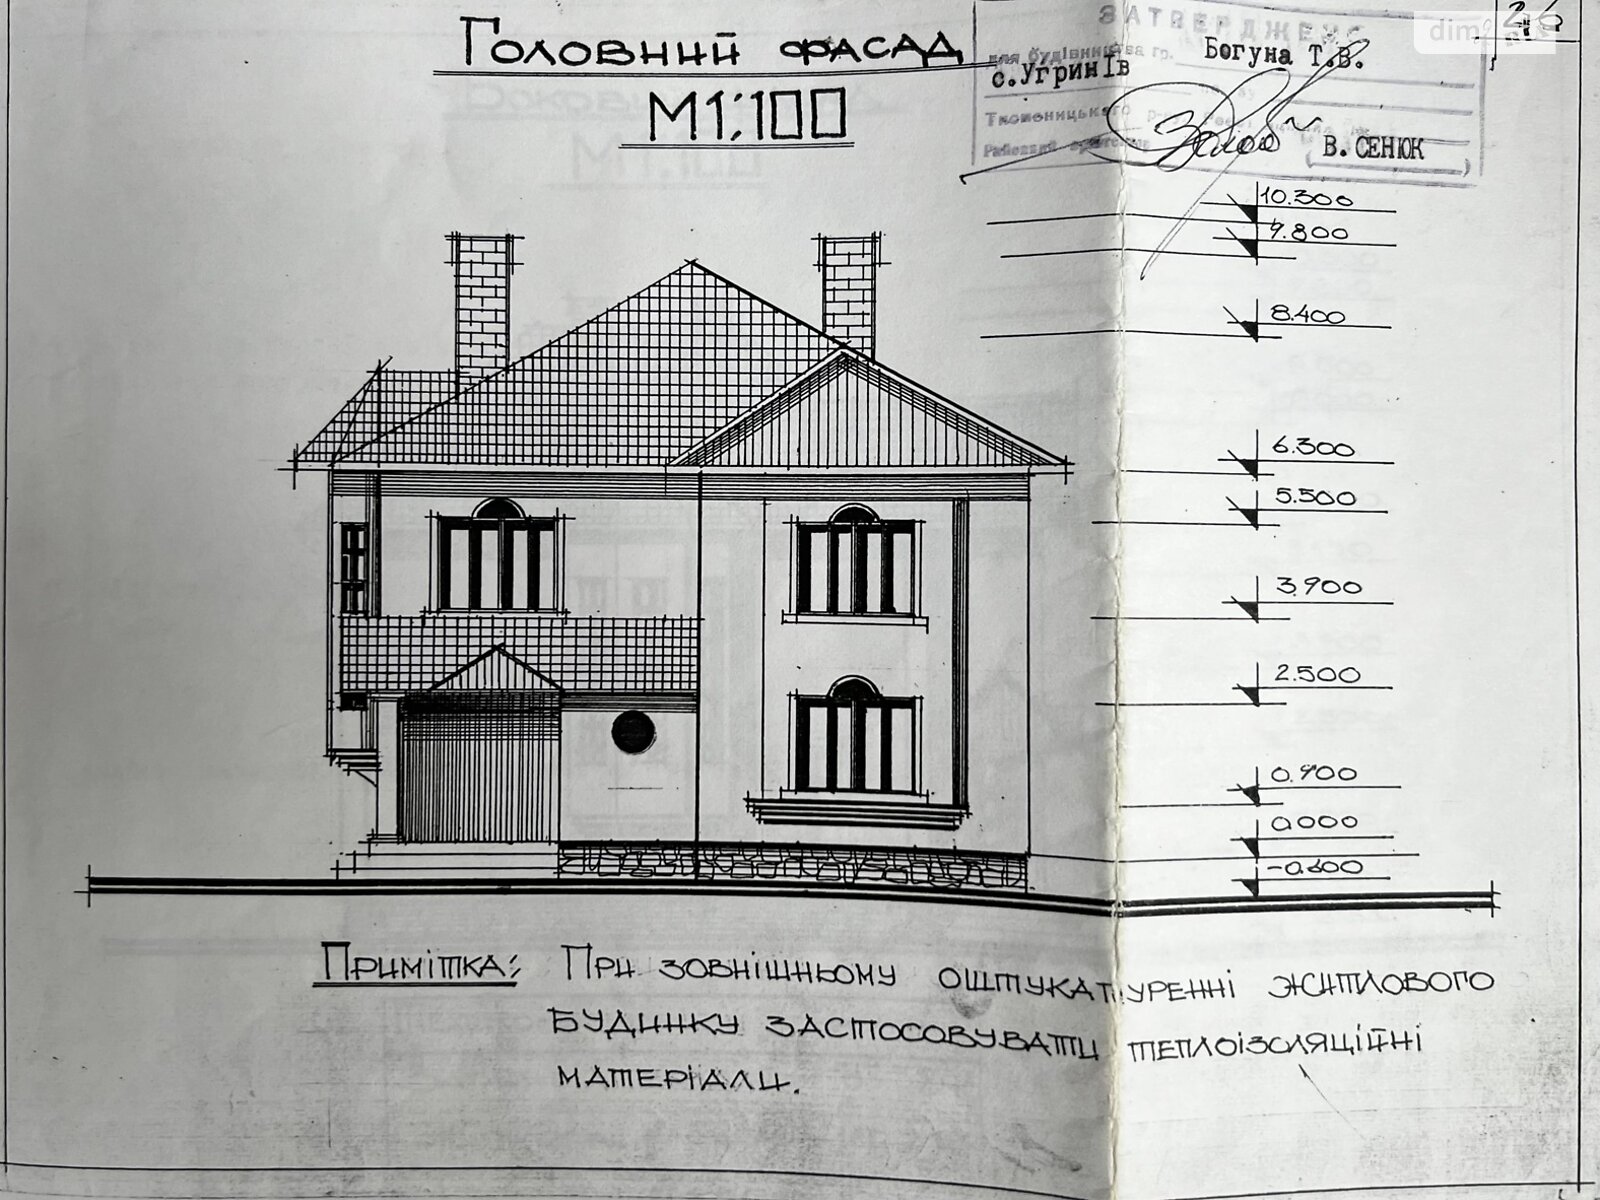 Головний фасад
М1:100
ЗАТВЕРДЖЕНО
для будівництва гр. Богуна Т.В.
с.Угринів
Тисменицького
В. СЕНЮК
dim
10.300
9.800
8.400
6.300
5.500
3.900
2.500
0.900
0.000
-0.600
Примітка: При зовнішньому оштукатуренні житлового
будинку застосовувати теплоізсляційні
матеріали.